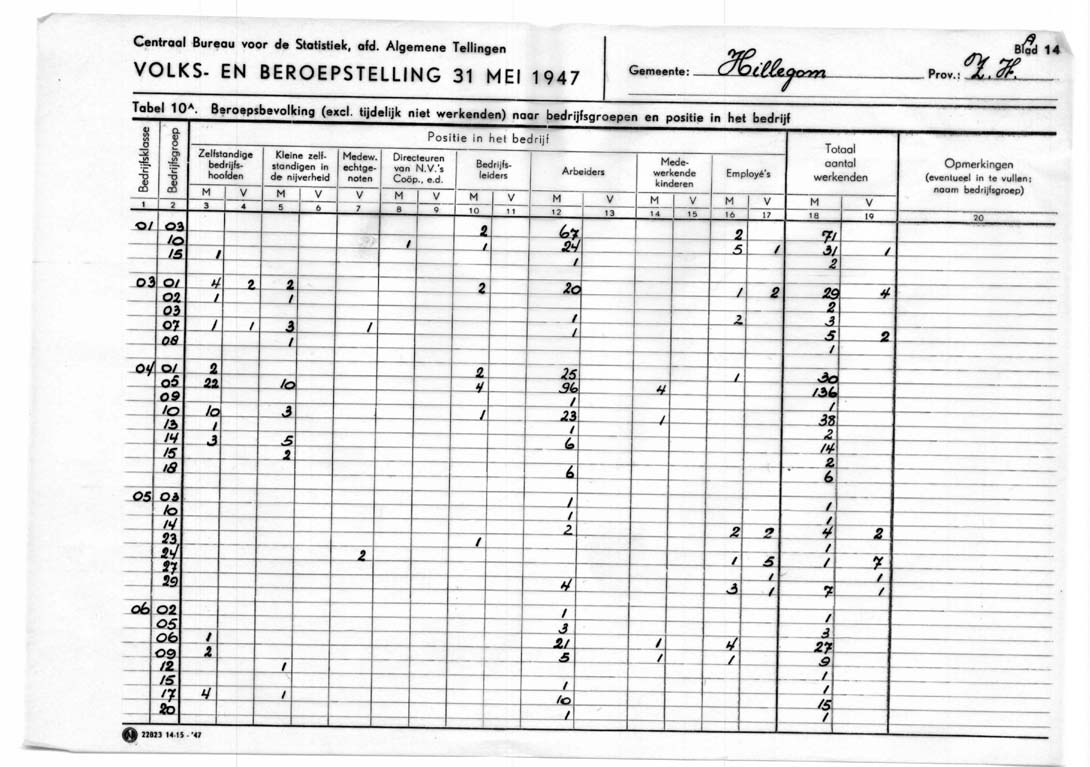 Centraal Bureau voor de Statistiek, afd. Algemene Tellingen
VOLKS- EN BEROEPSTELLING 31 MEI 1947
Gemeente: Hillegom
Prov.: Z.H.
A
Blad 14
Tabel 10A. Beroepsbevolking (excl. tijdelijk niet werkenden) naar bedrijfsgroepen en positie in het bedrijf
Bedrijfsklasse
Bedrijfsgroep
Positie in het bedrijf
Zelfstandige bedrijfs-hoofden
Kleine zelf-standigen in de nijverheid
Medew. echtge-noten
Directeuren van N.V.'s Coöp., e.d.
Bedrijfs-leiders
Arbeiders
Mede-werkende kinderen
Employé's
Totaal aantal werkenden
Opmerkingen (eventueel in te vullen: naam bedrijfsgroep)
M V M V V M V M V M V M V M V M V
1 2 3 4 5 6 7 8 9 10 11 12 13 14 15 16 17 18 19 20
01 03 2 67 2 71
10 1 1 24 5 1 31 1
15 1 1 2
03 01 4 2 2 2 20 1 2 29 4
02 1 1 2
03 1 2 3
07 1 1 3 1 1 5 2
08 1 1
04 01 2 2 25 1 30
05 22 10 4 96 4 136
09 1 1
10 10 3 1 23 1 38
13 1 1 2
14 3 5 6 14
15 2 2
18 6 6
05 03 1 1
10 1 1
14 2 2 2 4 2
23 1 1
24 2 1 5 1 7
27 1 1
29 4 3 1 7 1
06 02 1 1
05 3 3
06 1 21 1 4 27
09 2 5 1 1 9
12 1 1
15 1 1
17 4 1 10 15
20 1 1
22823 14-15 - '47